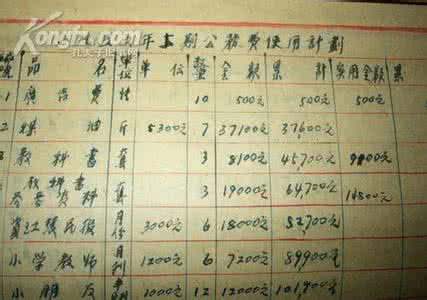 Kongfz.com
孔夫子旧书网
年上期公務費使用計劃
號 品名 單位 單位 數 金額 累計 實用金額 累
1 廣告費 10 500元 500元 500元
2 煤油 斤 5300元 7 37100元 37600元
3 教科書 套 3 8100元 45,700元 9900元
教科書
参考資料 套 3 19000元 64,700元 14800元
資江農民報 月份 3000元 6 18000元 82,700元
小学教师 月刊 1200元 6 7200元 89900元
小朋友 1000元 12 12000元 101,900元